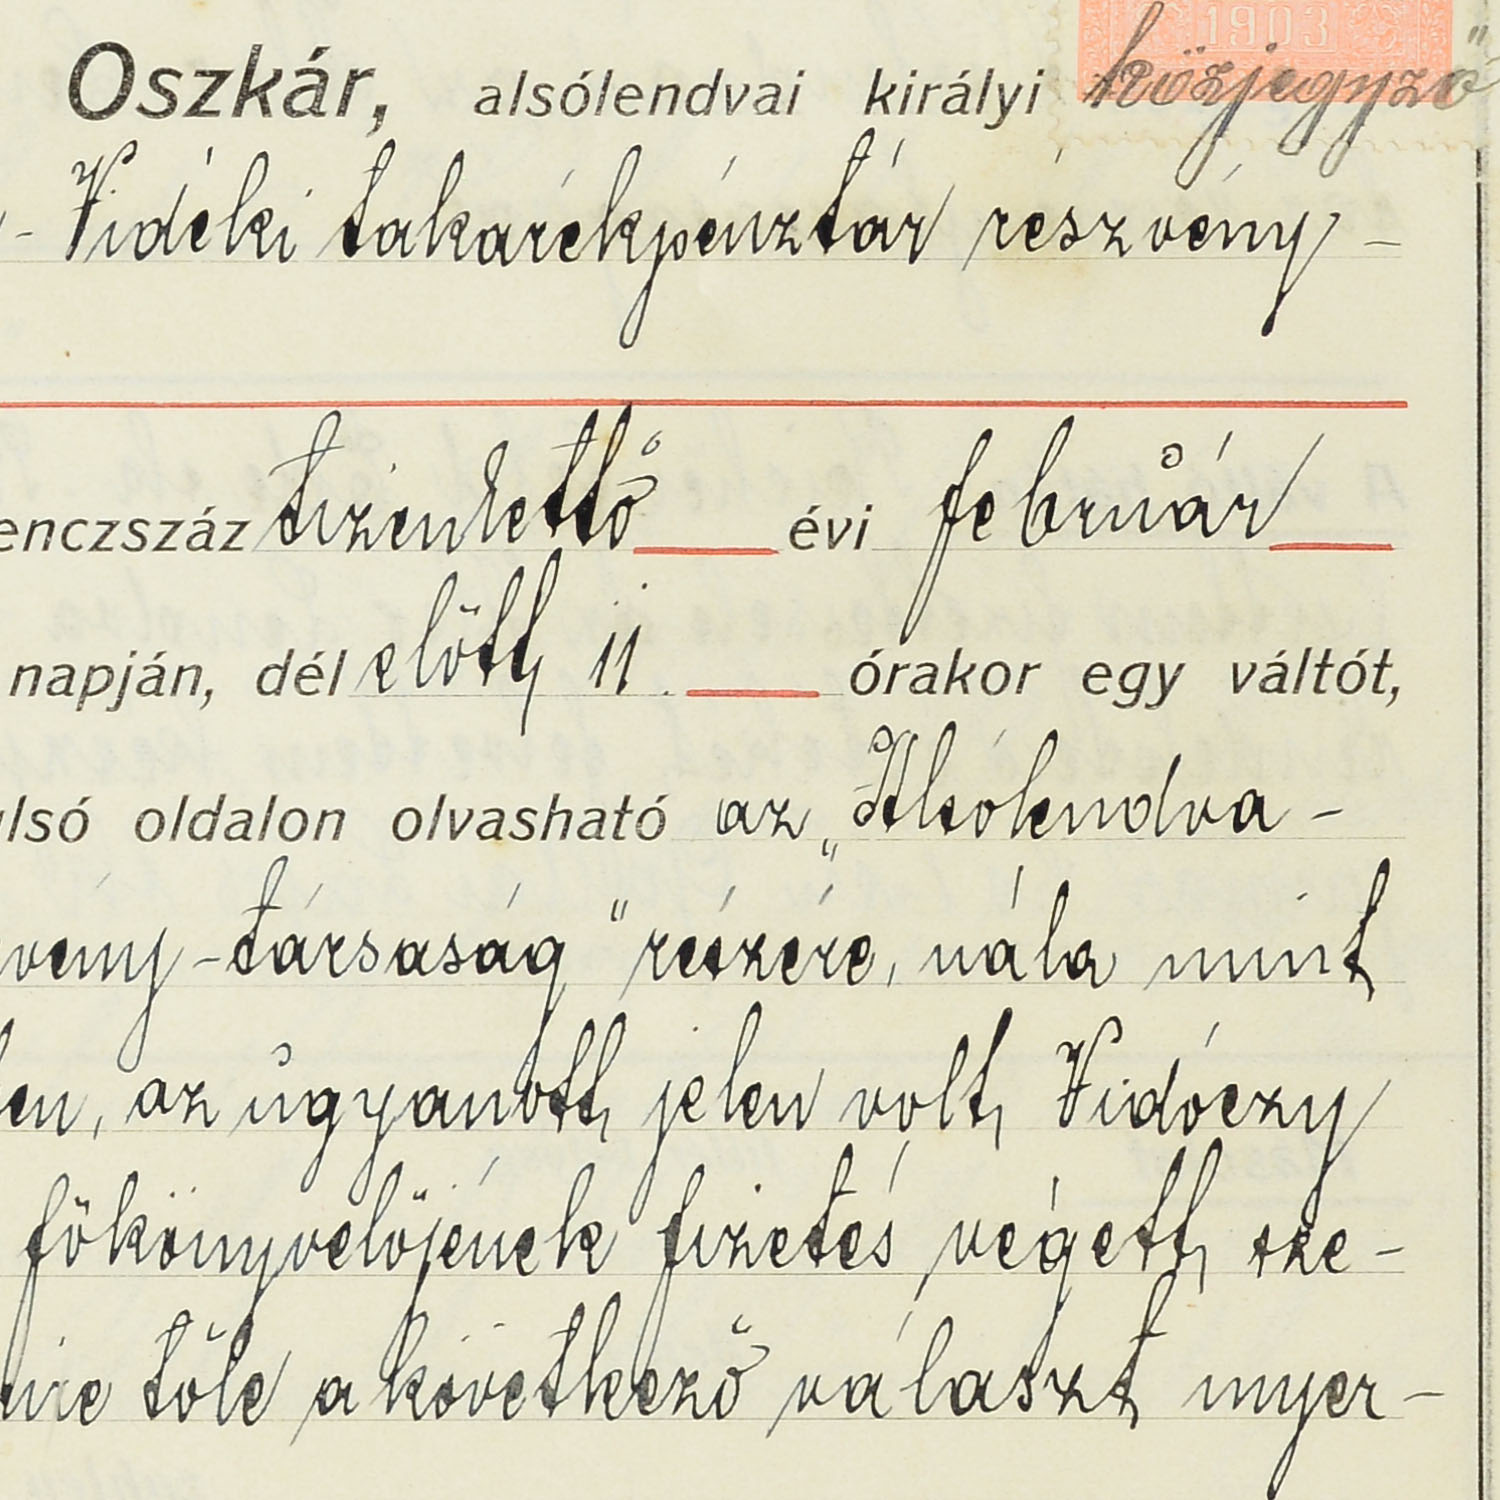 1903
Oszkár, alsólendvai királyi közjegyző
- Vidéki takarékpénztár részvény -
enczszáz tizenkettő évi február
napján, dél előtt 11 órakor egy váltót,
ulsó oldalon olvasható az „Alsólendva -
vény - társaság" részére, nála mint
en, az ugyanott jelen volt Vidóczy
főkönyvelőjének fizetés végett sze -
tőle a következő választ nyer -